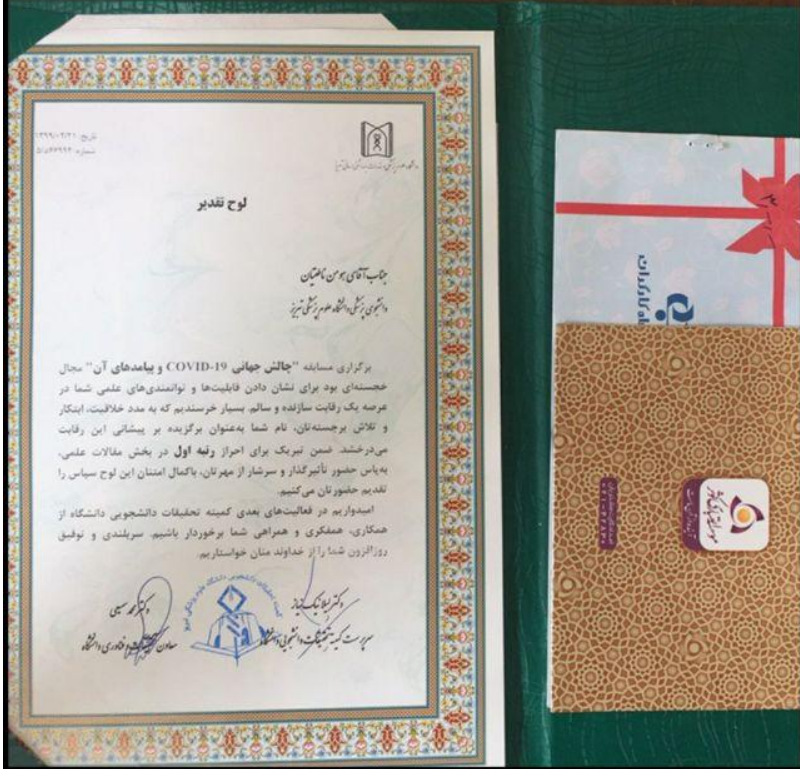 تاریخ: ۱۳۹۹/۰۳/۲۱
شماره: ۵/د/۴۴۹۹۴
دانشگاه علوم پزشکی و خدمات بهداشتی درمانی تبریز
لوح تقدیر
جناب آقای هومن ناطقیان
دانشجوی پزشکی دانشگاه علوم پزشکی تبریز
برگزاری مسابقه "چالش جهانی COVID-19 و پیامدهای آن" مجال
خجسته‌ای بود برای نشان دادن قابلیت‌ها و توانمندی‌های علمی شما در
عرصه یک رقابت سازنده و سالم. بسیار خرسندیم که به مدد خلاقیت، ابتکار
و تلاش برجسته‌تان، نام شما به‌عنوان برگزیده بر پیشانی این رقابت
می‌درخشد. ضمن تبریک برای احراز رتبه اول در بخش مقالات علمی،
به‌پاس حضور تأثیرگذار و سرشار از مهرتان، باکمال امتنان این لوح سپاس را
تقدیم حضورتان می‌کنیم.
امیدواریم در فعالیت‌های بعدی کمیته تحقیقات دانشجویی دانشگاه از
همکاری، همفکری و همراهی شما برخوردار باشیم. سربلندی و توفیق
روزافزون شما را از خداوند منان خواستاریم.
دکتر لیلا نیک نیاز
سرپرست کمیته تحقیقات دانشجویی دانشگاه
دکتر محمد سمیعی
معاون تحقیقات و فناوری دانشگاه
کارگران